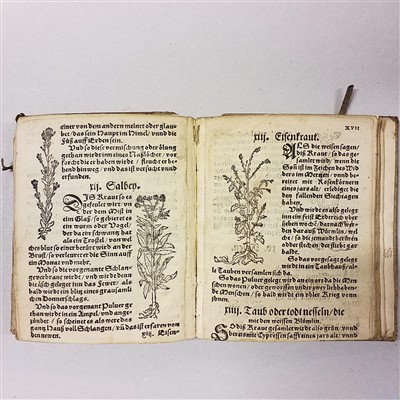 einer von dem andern meinet oder glau-
bet / das sein Haupt im Himel / vnd die
Füß auff Erden sein.
Vnd so diese vermischung oder ölung
gethan wird im eines Naßlöcher / vor
hecht hinweg / vnd das ist versucht vnd
erfunden.
xij. Salbey.
DIß Kraut so es
gefeulet wirt / vn
der dem Mist in ein
Glaß / so gebieret es
ein wurm oder Vogel /
der da ein schwantz hat
als ein Trostel / von wel
ches blut so einer berürt wird an der
Brust / so verleuret er die Sinn auff
ein Monat vnd mehr.
Vnd so die vorgenante Schlan-
ge verbrant wird / vnd wirt dem
die äsch geleget inn das Fewr / als
bald wirdt ein blitz eines grausamli
chen Donnerschlags.
Vnd so das vorgenant Puluer ge
than wird in ein Ampel / vnd ange-
zündet / so scheinet es als were das
gantz Hauß voll Schlangen / vñ das ist erfaren von
xiij. Eisen-
XVII
xiij. Eisenkraut.
ALS die weisen sagen /
diß Kraut / so das ge-
samlet wird / wenn die
Soñ ist im Zeichen des Wid
ders im Mertzen / vnd be-
reitet mit Rosenkörnern
eines jars alt / erlediget die
den fallenden Siechtagen
haben.
Vnd wird es also geleget
inn ein feist Erdtrich vber
sieben woche / darnach wer-
den daraus Würmlin / wel-
che / so jemandt berüren
oder stechen / der stirbt gren
balde.
So das vorgesagt gelegt
wird in ein Taubhauß / als
le Tauben versamlen sich da.
So das Puluer gelegt wird an ein ort da die Men
schen wonen / oder geworffen vnder zwey liebhaben-
de Menschen / so bald wirdt ein vbler Krieg vonn
jhnen.
xiiij. Taub oder todt nesseln / die
mit den weissen Blümlin.
SO diß Kraut gesamlet wird / also grün / vnd
bereit mit Cypressen safft eines jars alt / vnnd